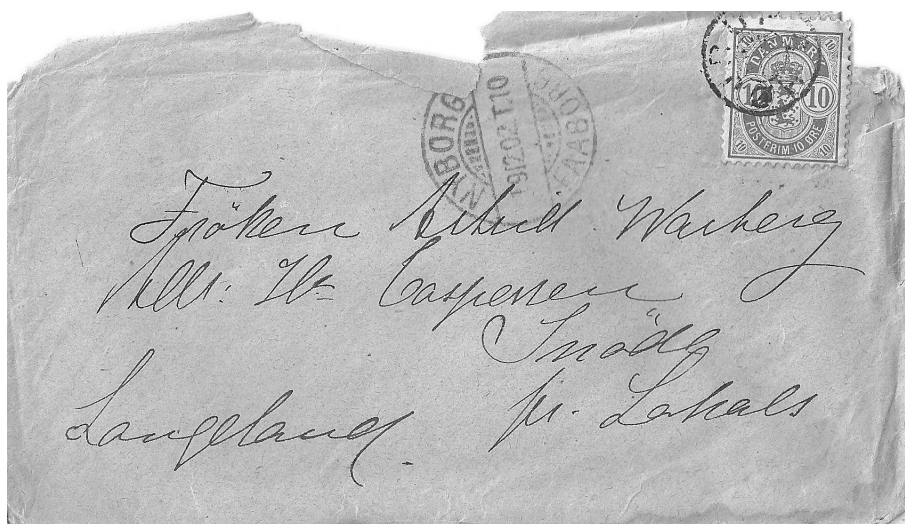 DANMARK
10 10
POSTFRIM 10 ØRE
NYBORG
19.12.02 T.10
FAABORG
Fröken Astrid Warberg
Adr: Hr Caspersen
Snöde
pr. Lohals
Langeland.